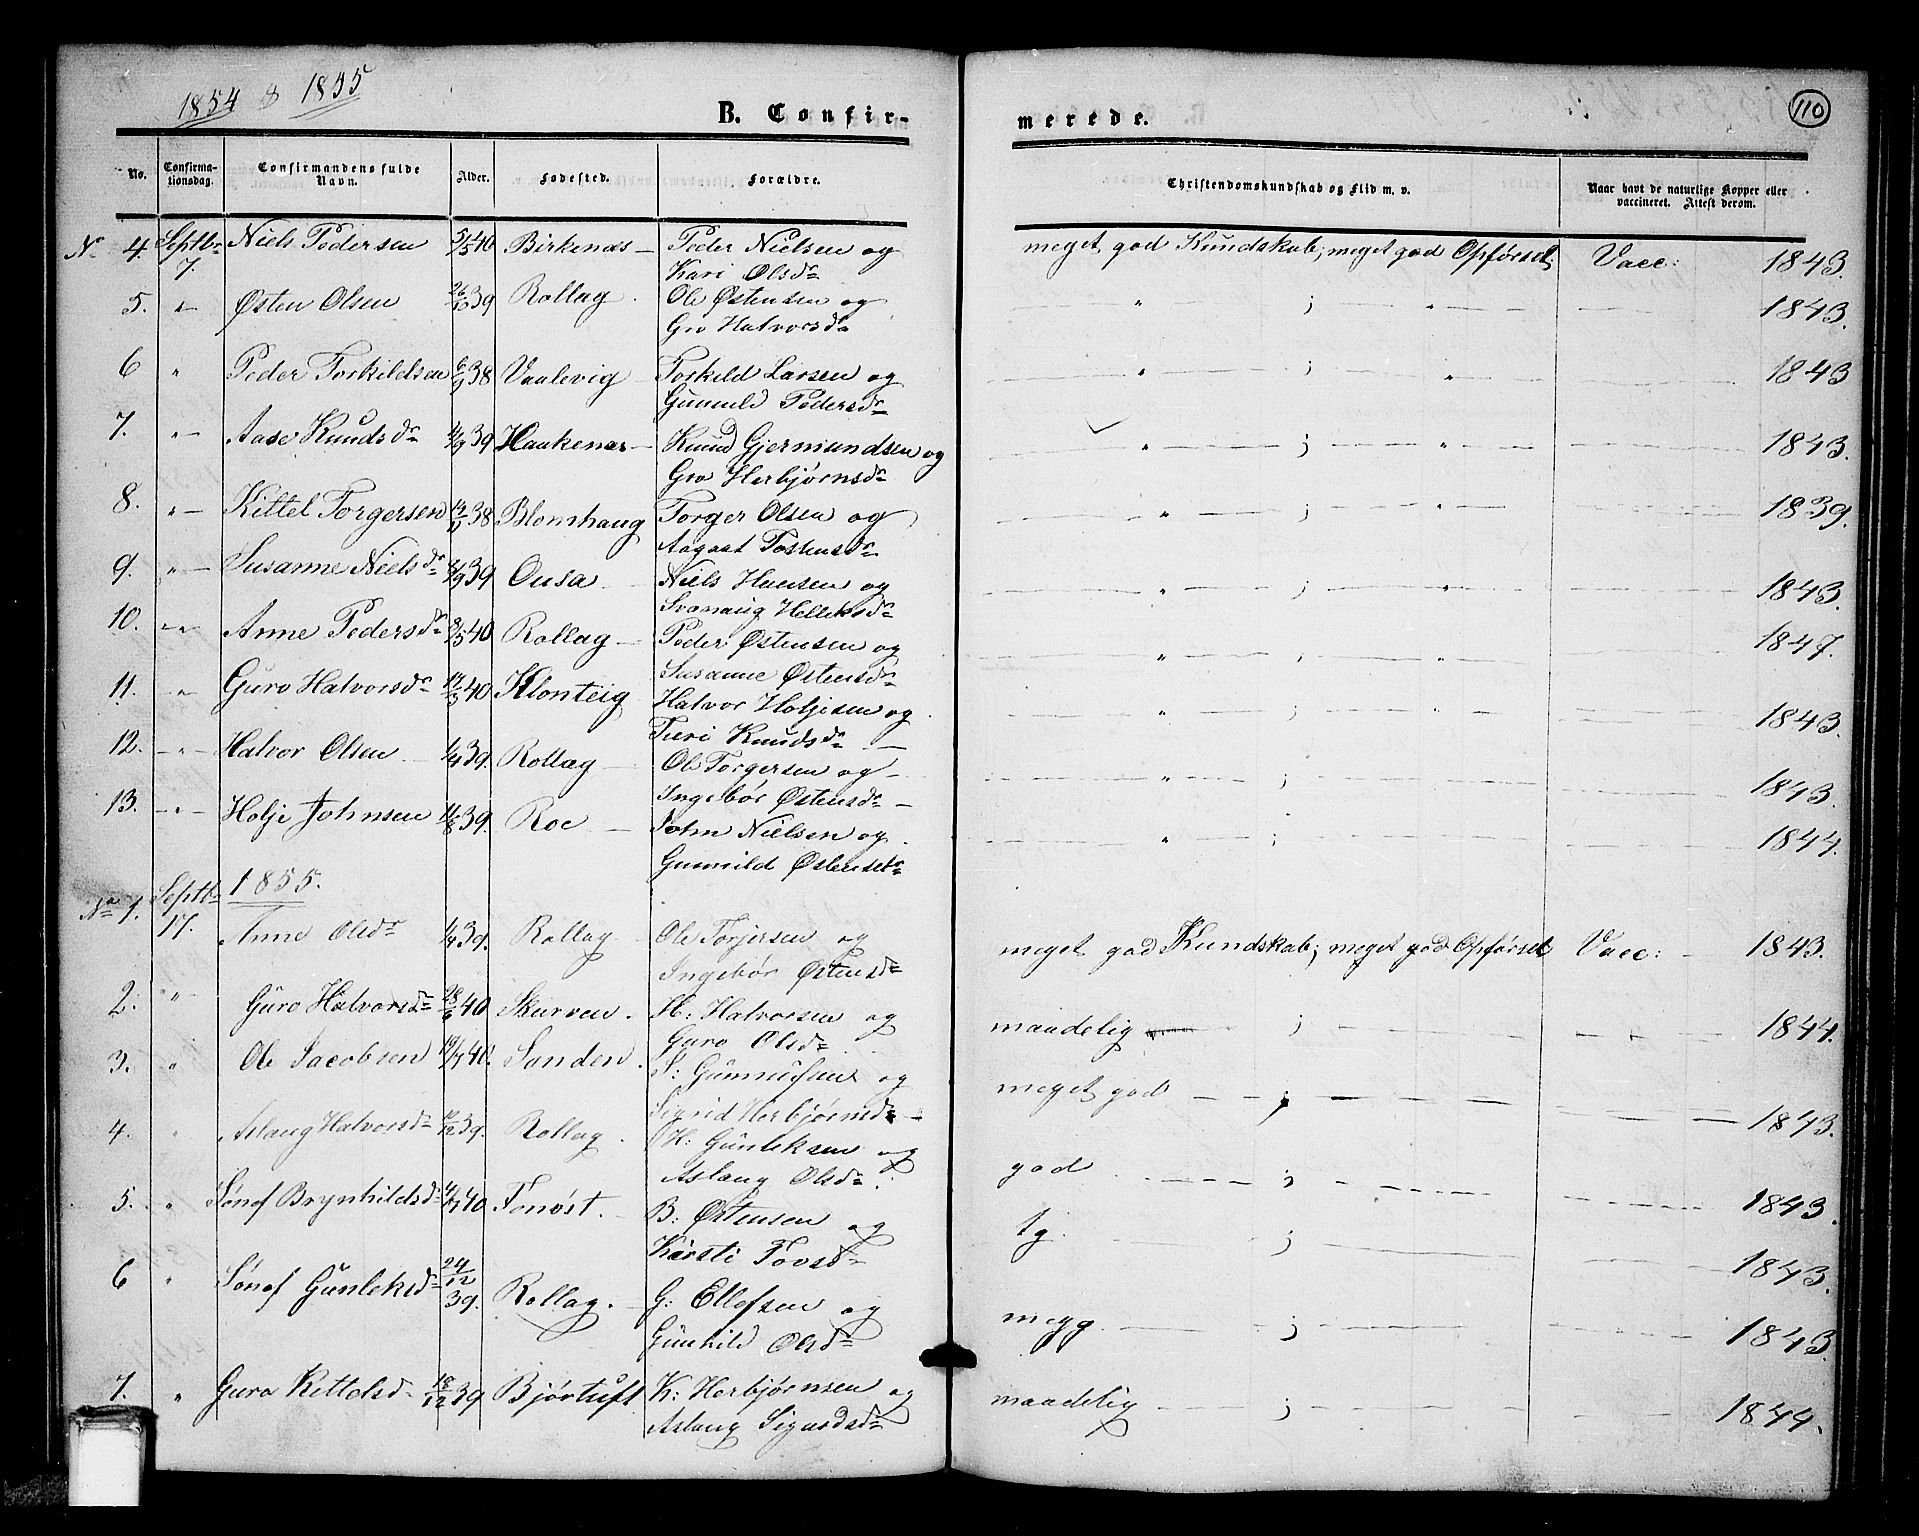 1854 & 1855
110
B. Confirmerede.
No. Confirmationsdag. Confirmandens fulde Navn. Alder. Fødested. Forældre. Christendomskundskab og Flid m. v. Naar havt de naturlige Kopper eller vaccineret. Attest derom.
No 4. Septbr 7. Niels Pedersen 5/5 40 Birkenæs — Peder Nielsen og Kari Olsdr meget god Kundskab; meget god Opførsel Vacc: 1843.
5. " Østen Olsen 26/10 39 Rollag. Ole Østensen og Gro Halvorsdr " ; " 1843.
6 " Peder Torkildsen 38 Vaalevig Torkild Larsen og Gunnild Pedersdr " ; " 1843
7. " Aase Knudsdr 39 Haakenæs — Knud Gjermundsen og Gro Herbjørnsdr " ; " 1843.
8. " Kittel Torgersen 38 Blomhaug Torger Olsen og Aagaat Tostensdr " ; " 1839.
9. " Susanne Nielsdr 39 Ousa Niels Hansen og Svanaug Helleksdr " ; " 1843.
10. " Anne Pedersdr 40 Rollag — Peder Østensen og Susanne Østensdr " ; " 1847.
11. " Guro Halvorsdr 40 Klonteig Halvor Holjesen og Turi Knudsdr " ; " 1843.
12. " Halvor Olsen 39. Rollag Ole Torgersen og Ingebør Østensdr " ; 1843.
13. " Holje Johnsen 39. Roe John Nielsen og Gunnild Østensdr " ; 1844.
1855.
No 1. Septbr 17. Anne Olsdr 39. Rollag Ole Torjersen og Ingebør Østensdr meget god Kundskab; meget god Opførsel Vacc: 1843.
2. " Guro Halvorsdr 40 Skurven. H: Halvorsen og Guro Olsdr maadelig ; 1844.
3. " Ole Jacobsen 40. Sanden. J: Gunnufsen og Sigrid Herbjørnsdr meget god ; 1843.
4. " Aslaug Halvorsdr 39. Rollag. H: Gunleksen og Aslaug Olsdr. god ; 1843.
5. " Sønof Brynhildsdr 40 Tonøst. B: Østensen og Kirsti Tovsdr tg. ; 1843.
6 " Sønof Gunleksdr 24/12 39. Rollag. G: Ellefsen og Gunhild Olsdr megg. ; 1843.
7. " Guro Kittelsdr 18/12 39 Bjørtuft K: Herbjørnsen og Aslaug Sigurdsdr maadelig ; 1844.